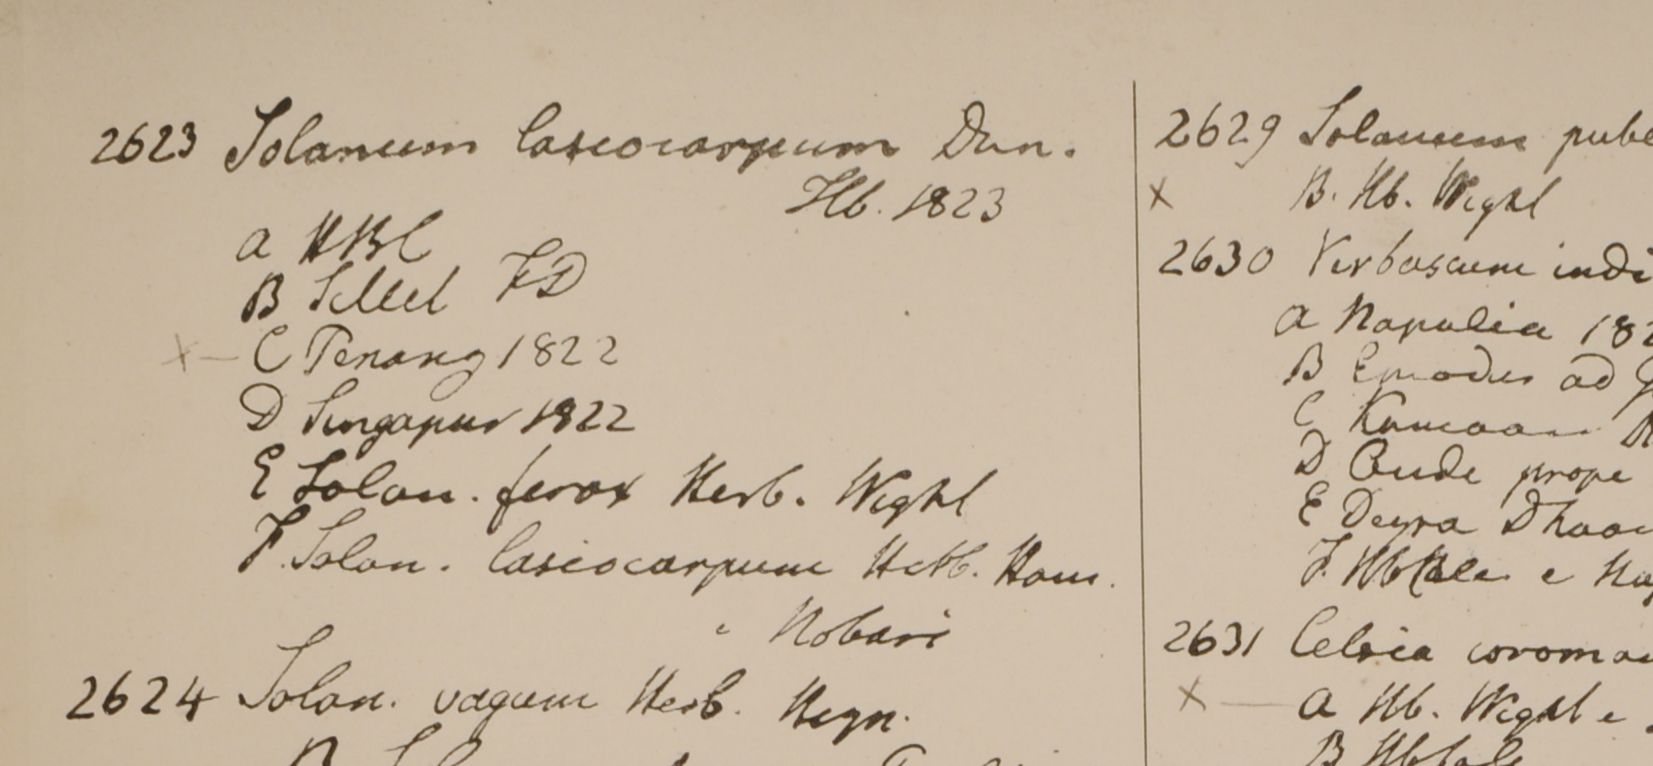 2623 Solanum lasiocarpum Dun.
Hb. 1823
a HBC
B Sillet FD
x — C Penang 1822
D Singapur 1822
E Solan. ferox Herb. Wight
F. Solan. lasiocarpum Herb. Ham.
e Nobari
2624 Solan. vagum Herb. Heyn.
B
2629 Solanum pube
x B. Hb. Wight
2630 Verbascum indi
a Napalia 182
B Emodus ad G
C Kamaon
D Oude prope
E Deyra Dhoo
F. e Na
2631 Celsia coroman
x — a Hb. Wight e
B